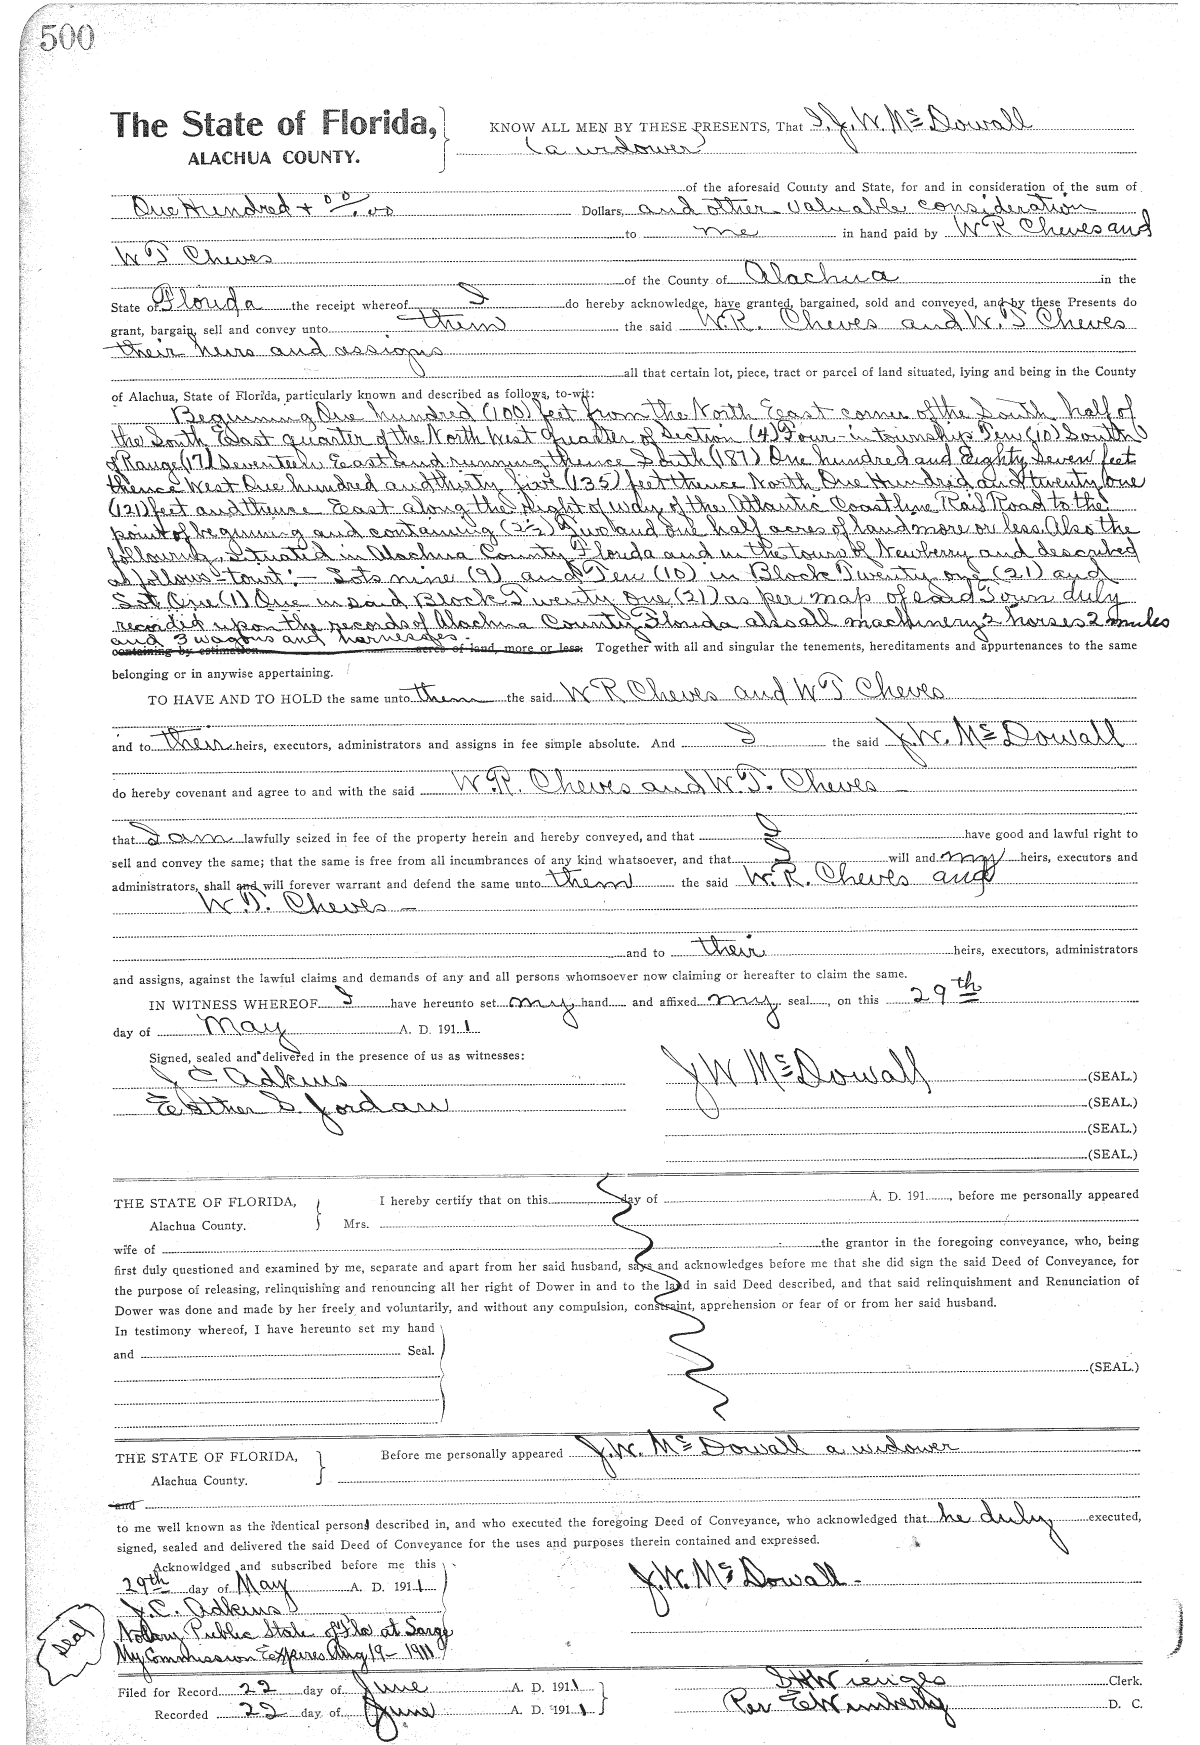 500
The State of Florida,
ALACHUA COUNTY.
KNOW ALL MEN BY THESE PRESENTS, That I, J. W. McDowall
(a widower)
of the aforesaid County and State, for and in consideration of the sum of
One Hundred + 00/.00 Dollars, and other valuable consideration
to me in hand paid by W R Cheves and
W T Cheves
of the County of Alachua in the
State of Florida the receipt whereof I do hereby acknowledge, have granted, bargained, sold and conveyed, and by these Presents do
grant, bargain, sell and convey unto them the said W.R. Cheves and W.T Cheves
their heirs and assigns
all that certain lot, piece, tract or parcel of land situated, lying and being in the County
of Alachua, State of Florida, particularly known and described as follows, to-wit:
Beginning One hundred (100) feet from the North East corner of the South half of
the South East quarter of the North West quarter of Section (4) Four in township Ten (10) South
of Range (17) Seventeen East and running thence South (187) One hundred and Eighty Seven feet
thence West One hundred and thirty five (135) feet thence North One Hundrid and twenty one
(121) feet and thence East along the Right of way of the Atlantic Coastline Rail Road to the
point of beginning and containing (2½) Two and one half acres of land more or less Also the
following, Situated in Alachua County Florida and in the town of Newberry and described
as follows-towit:- Lots nine (9) and Ten (10) in Block Twenty one (21) and
Lot One (1) One in said Block Twenty one (21) as per map of said Town duly
recorded upon the records of Alachua County Florida also all machinery 2 horses 2 mules
and 3 wagons and harnesses.
containing by estimation acres of land, more or less. Together with all and singular the tenements, hereditaments and appurtenances to the same
belonging or in anywise appertaining.
TO HAVE AND TO HOLD the same unto them the said W R Cheves and W T Cheves
and to their heirs, executors, administrators and assigns in fee simple absolute. And I the said J.W. McDowall
do hereby covenant and agree to and with the said W.R. Cheves and W.T. Cheves
that I am lawfully seized in fee of the property herein and hereby conveyed, and that I have good and lawful right to
sell and convey the same; that the same is free from all incumbrances of any kind whatsoever, and that I will and my heirs, executors and
administrators, shall and will forever warrant and defend the same unto them the said W.R. Cheves and
W.T. Cheves
and to their heirs, executors, administrators
and assigns, against the lawful claims and demands of any and all persons whomsoever now claiming or hereafter to claim the same.
IN WITNESS WHEREOF I have hereunto set my hand and affixed my seal, on this 29th
day of May A. D. 1911
Signed, sealed and delivered in the presence of us as witnesses:
J C Adkins
J W McDowall (SEAL.)
Esther S Jordan
(SEAL.)
(SEAL.)
(SEAL.)
THE STATE OF FLORIDA,
Alachua County.
I hereby certify that on this day of A. D. 191, before me personally appeared
Mrs.
wife of the grantor in the foregoing conveyance, who, being
first duly questioned and examined by me, separate and apart from her said husband, says and acknowledges before me that she did sign the said Deed of Conveyance, for
the purpose of releasing, relinquishing and renouncing all her right of Dower in and to the land in said Deed described, and that said relinquishment and Renunciation of
Dower was done and made by her freely and voluntarily, and without any compulsion, constraint, apprehension or fear of or from her said husband.
In testimony whereof, I have hereunto set my hand
and Seal.
(SEAL.)
THE STATE OF FLORIDA,
Alachua County.
Before me personally appeared J.W. McDowall a widower
and
to me well known as the identical person described in, and who executed the foregoing Deed of Conveyance, who acknowledged that he duly executed,
signed, sealed and delivered the said Deed of Conveyance for the uses and purposes therein contained and expressed.
Acknowldged and subscribed before me this
29th day of May A. D. 1911
J.W. McDowall
J.C. Adkins
Notary Public State of Fla at Large
My Commission Expires Aug 19 - 1911
Seal
Filed for Record 22 day of June A. D. 1911
S H Wienges Clerk.
Recorded 22 day of June A. D. 1911
Per E Wimberly D. C.